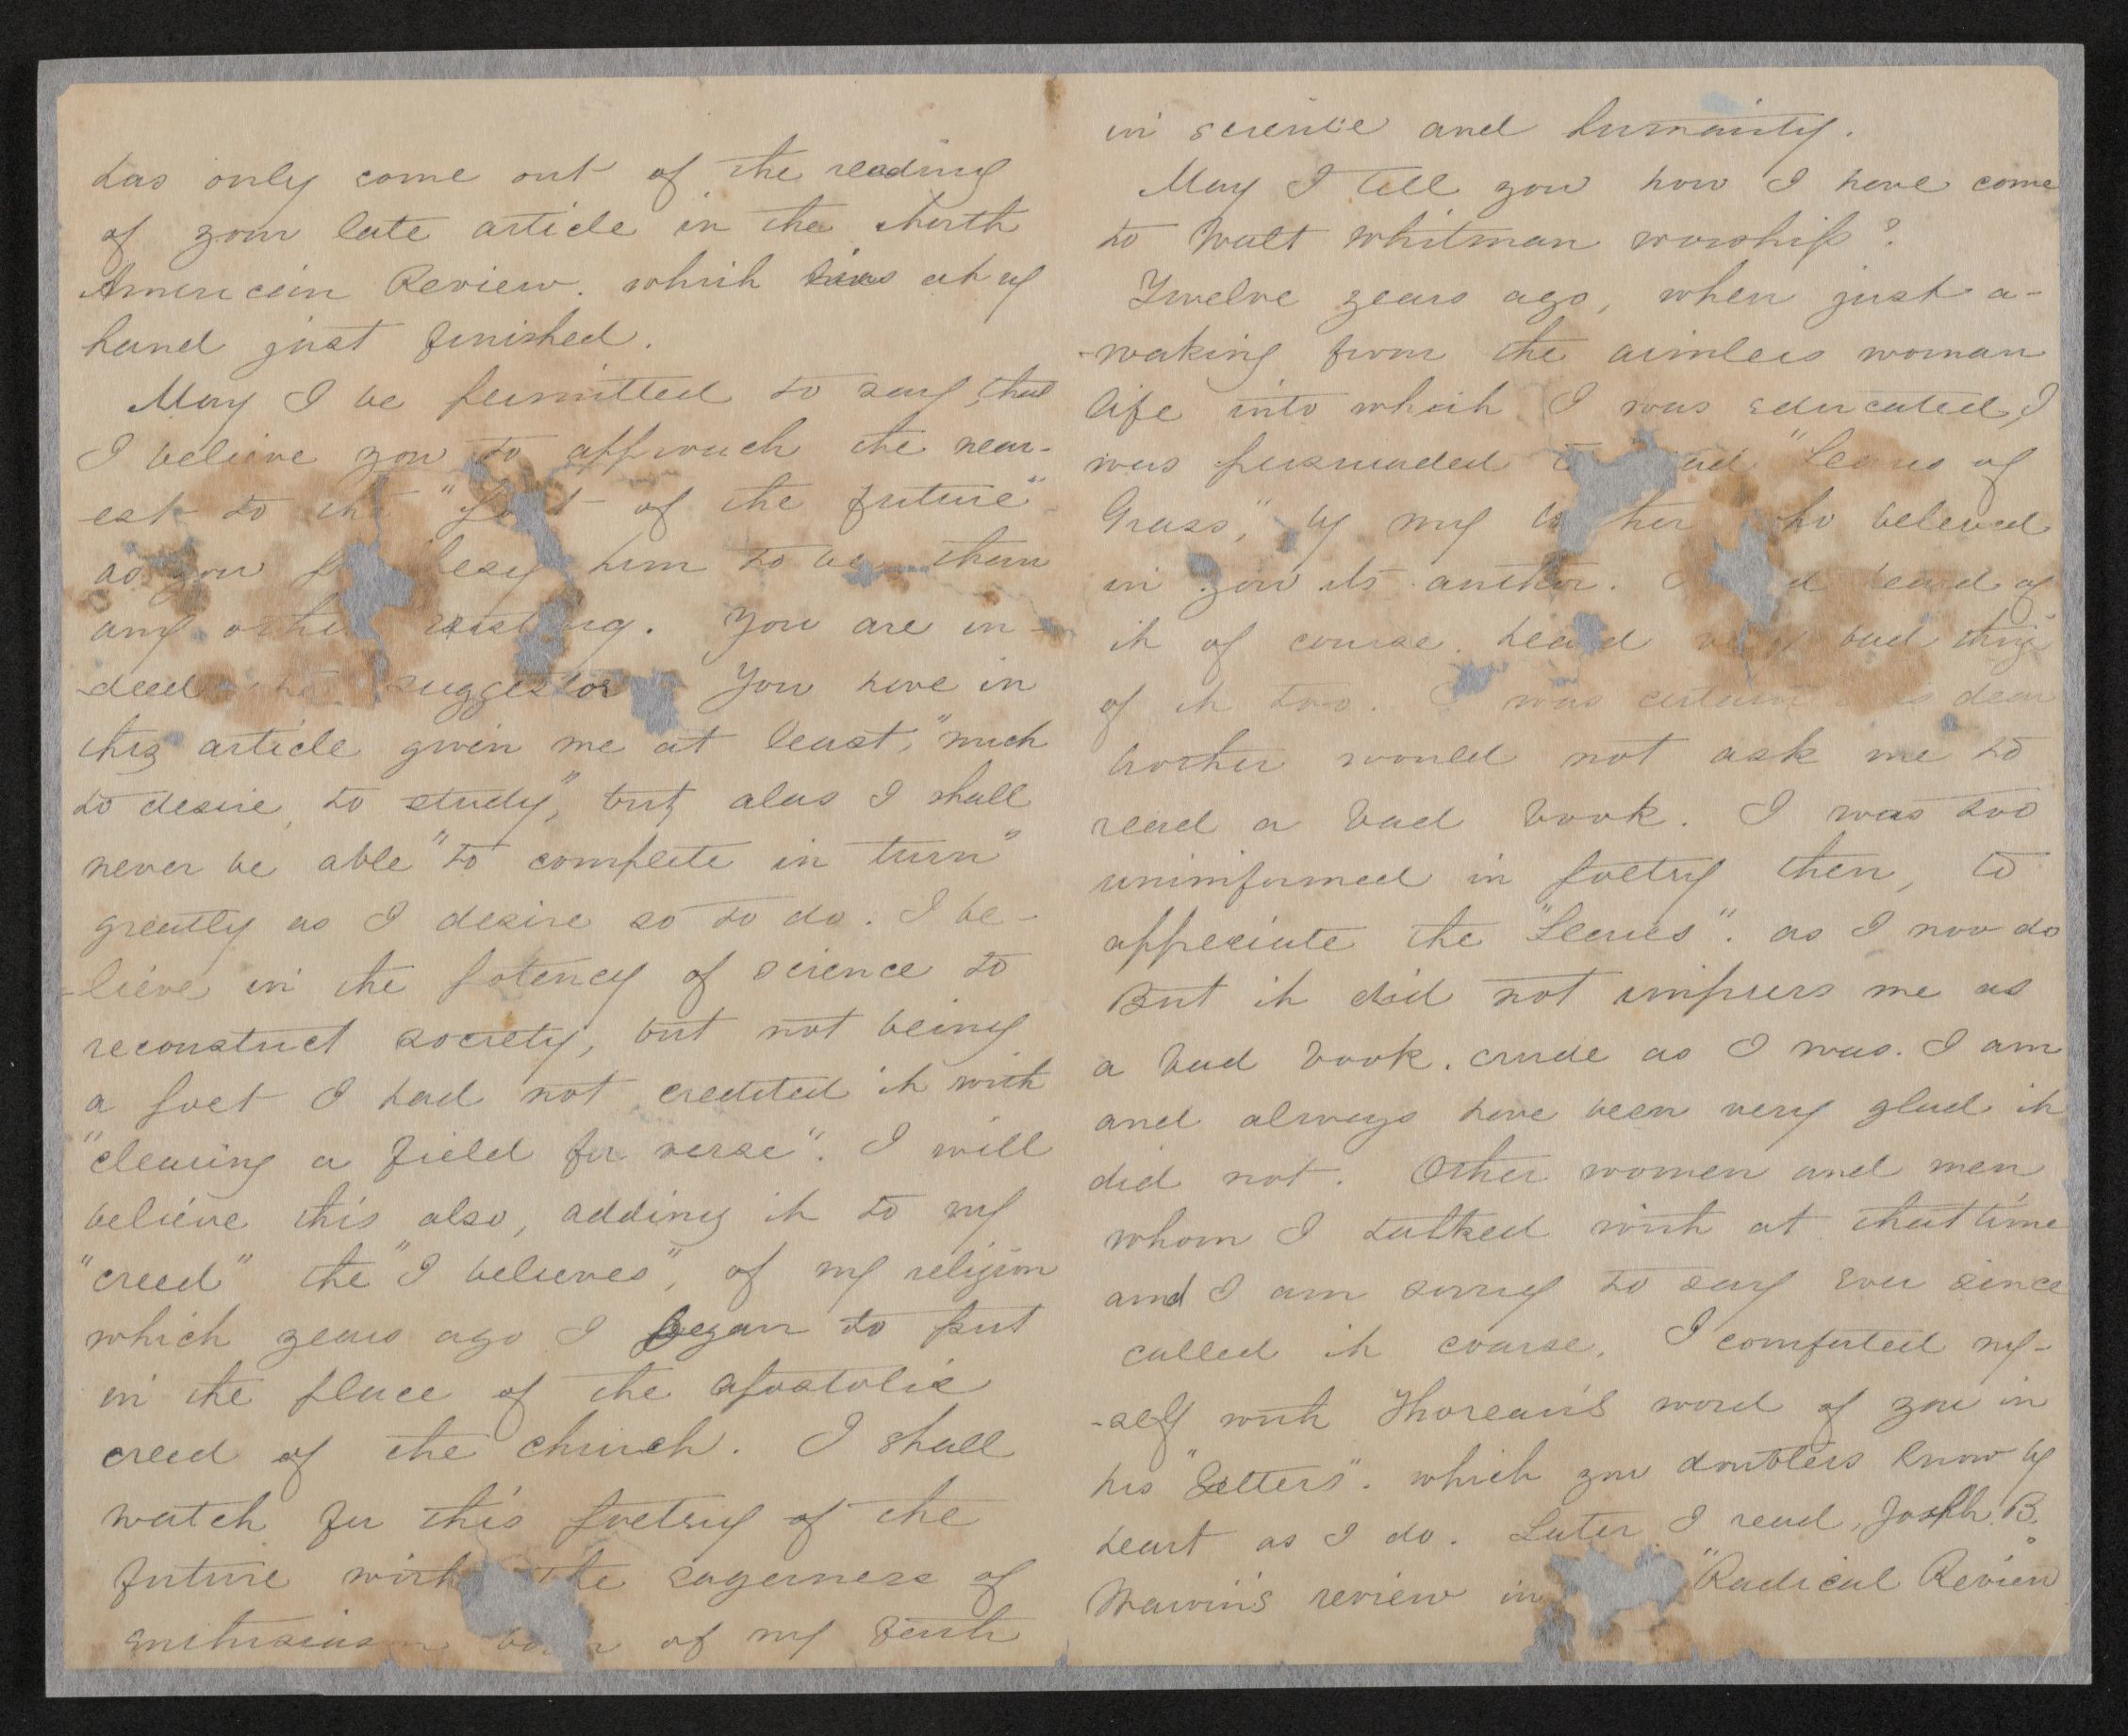 has only come out of the reading
of your late article in the North
American Review. which lies at my
hand just finished.
May I be permitted to say, that
I believe you to approach the near-
est to the "poet of the future"
as you him to be, than
any other existing. You are in-
deed suggestor. You have in
this article given me at least, "much
to desire, to study", but, alas I shall
never be able "to complete in turn"
greatly as I desire so to do. I be-
-lieve in the potency of science to
reconstruct society, but not being
a poet I had not credited it with
"clearing a field for verse". I will
believe this also, adding it to my
"creed" the "I believes", of my religion
which years ago I began to put
in the place of the apostolic
creed of the church. I shall
watch for this poetry of the
future with the eagerness of
enthusiasm born of my faith
in science and humanity.
May I tell you how I have come
to Walt Whitman worship?
Twelve years ago, when just a-
-waking from the aimless woman
life into which I was educated, I
was persuaded to read "Leaves of
Grass," by my brother who believed
in you its author. I had heard of
it of course. heard very bad things
of it too. I was certain this dear
brother would not ask me to
read a bad book. I was too
uninformed in poetry then, to
appreciate the "Leaves". as I now do
But it did not impress me as
a bad book. crude as I was. I am
and always have been very glad it
did not. Other women and men
whom I talked with at that time
and I am sorry to say ever since
called it coarse. I comforted my-
-self with Thoreau's word of you in
his "Letters". which you doubtless know by
heart as I do. Later I read, Joseph B.
Marvin's review in "Radical Review"